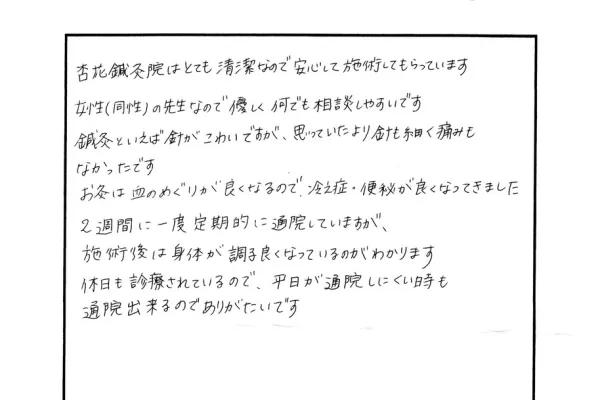 杏花鍼灸院はとても清潔なので安心して施術してもらっています
女性(同性)の先生なので優しく何でも相談しやすいです
鍼灸といえば針がこわいですが、思っていたより針も細く痛みも
なかったです
お灸は血のめぐりが良くなるので、冷え症・便秘が良くなってきました
2週間に一度定期的に通院していますが、
施術後は身体が調子良くなっているのがわかります
休日も診療されているので、平日が通院しにくい時も
通院出来るのでありがたいです